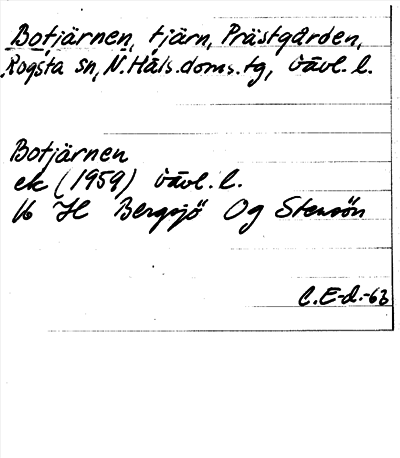 Botjärnen, tjärn, Prästgården,
Rogsta sn, N. Häls. doms. tg, Gävl. l.
Botjärnen
ek (1959) Gävl. l.
16 H Bergsjö Og Stensön
C.E-d.-63